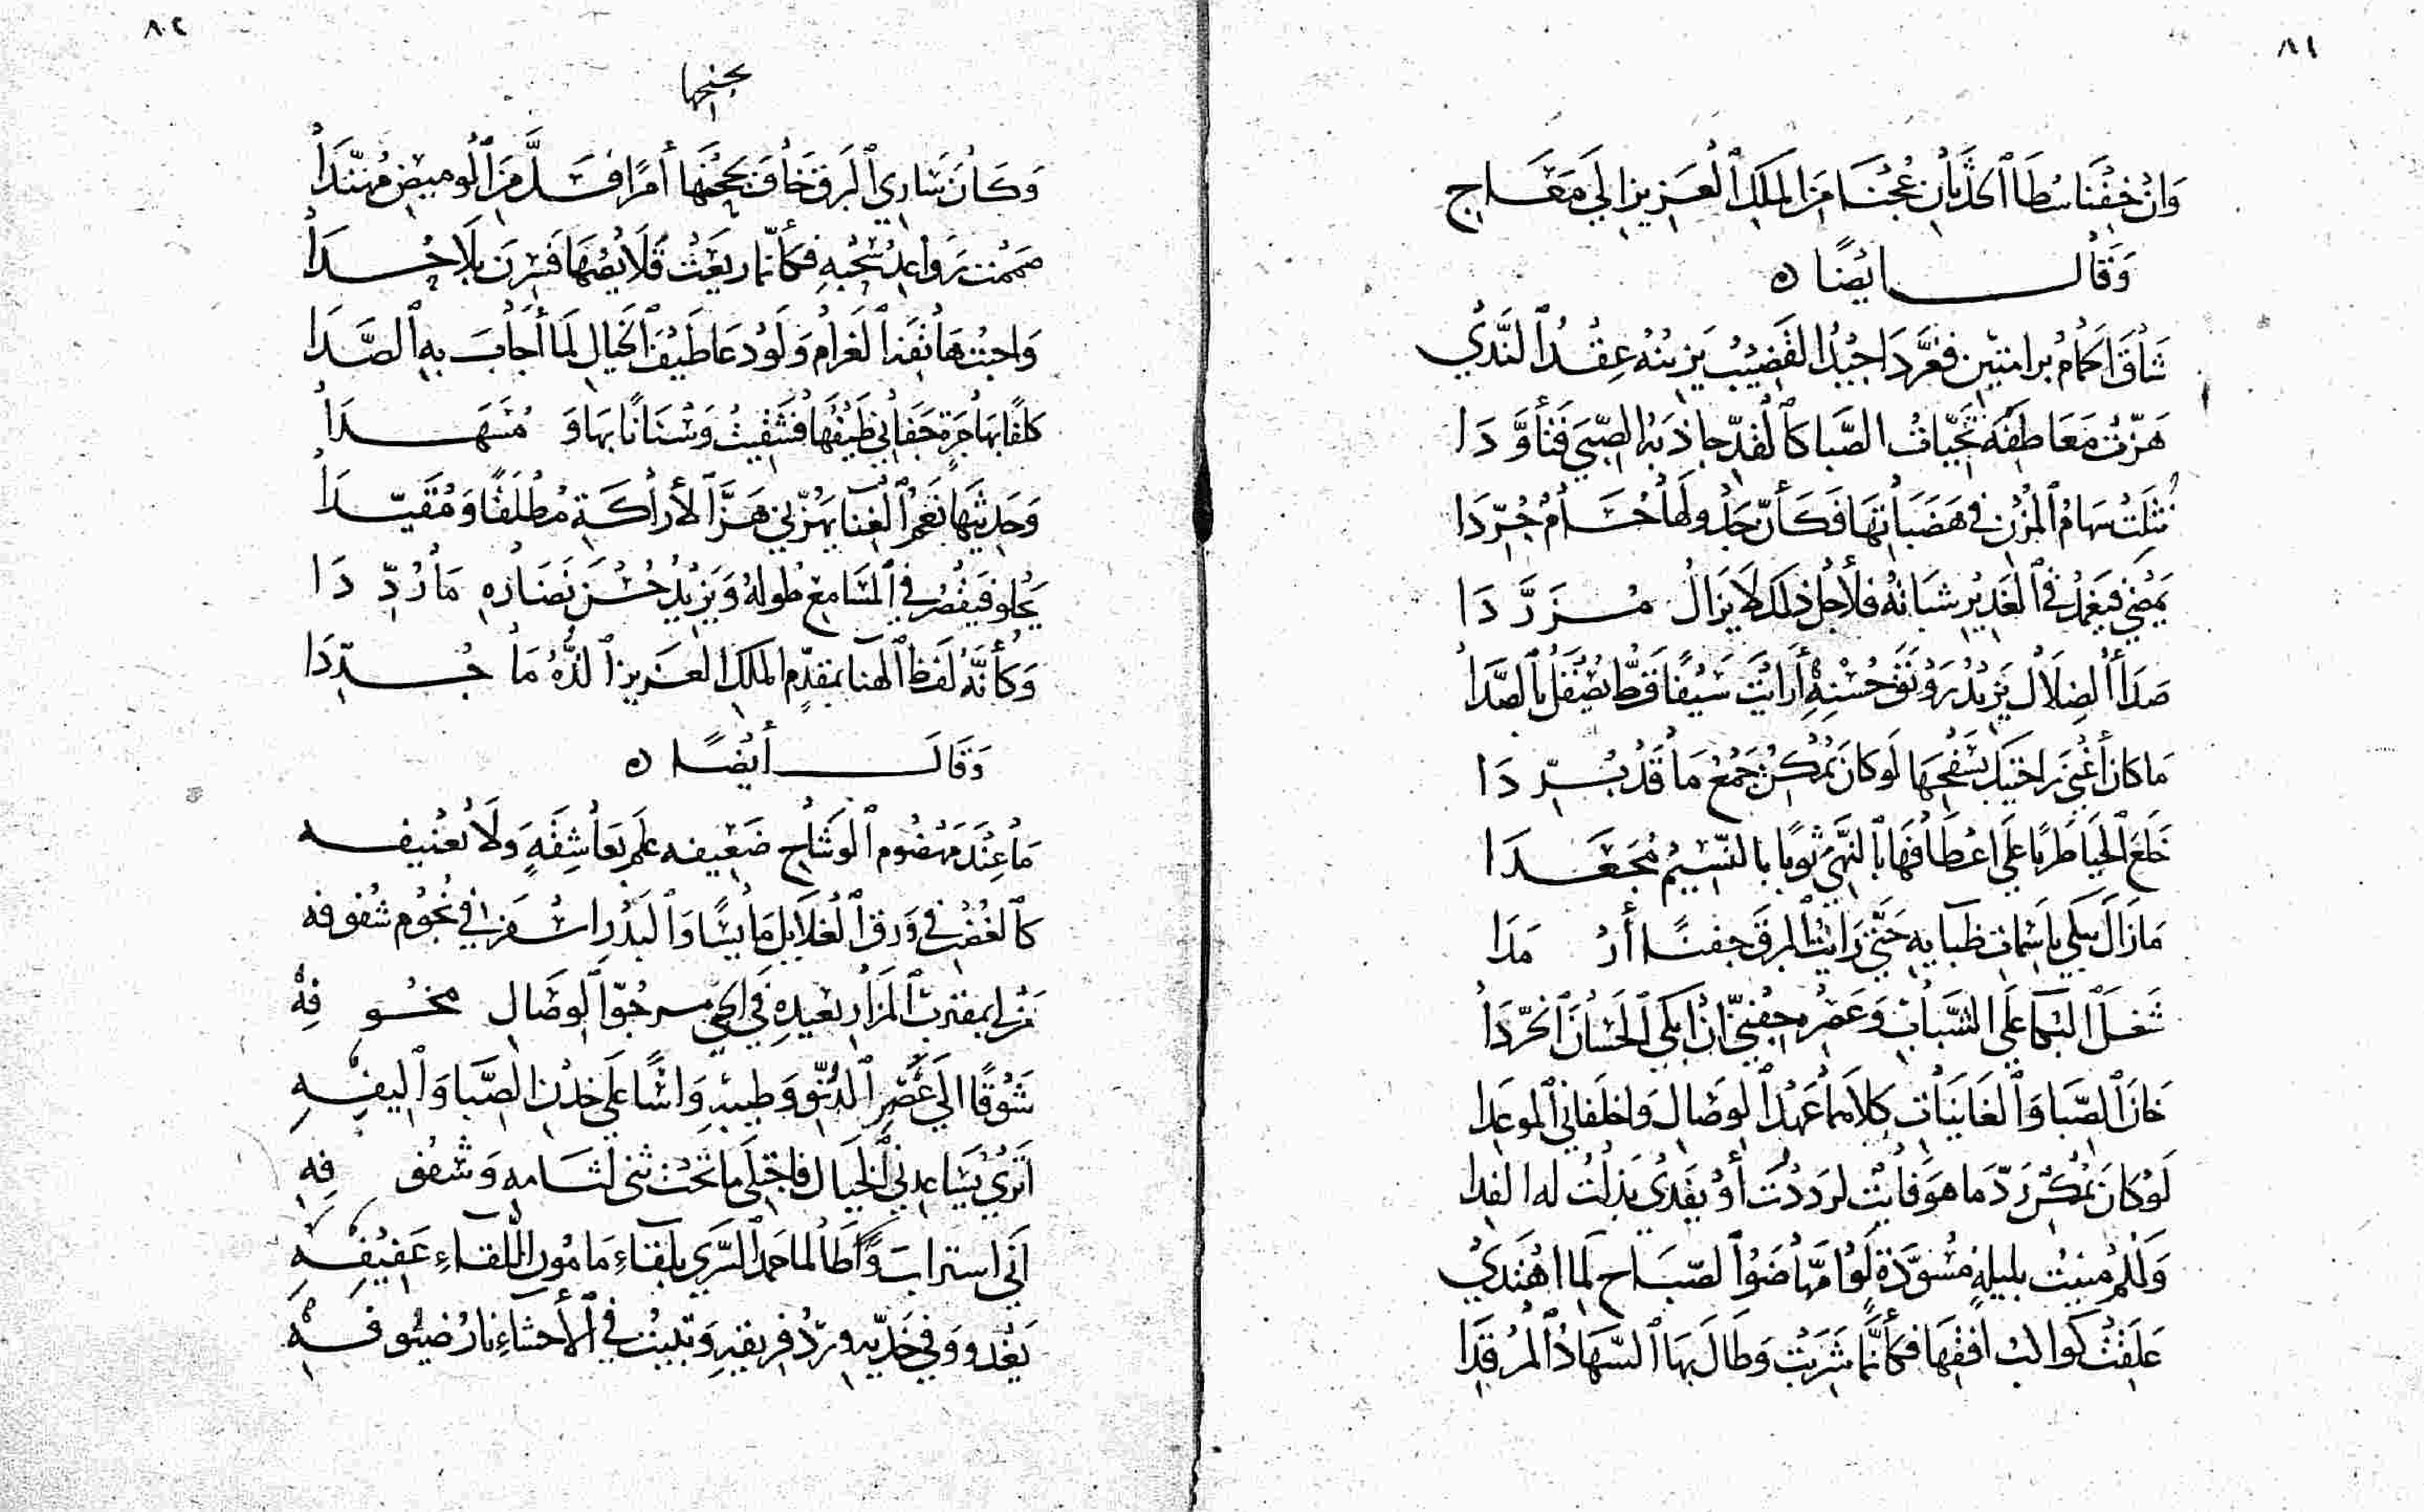 ٨١
وَانْ خِفْنَا سُطَا الحَدَثَانِ عُجْنَا مِنَ المَلِكِ العَزِيزِ الَي مَعَاج
وَقَال ايْضًا ه
شَاقَ الحَمَامُ برامتين فغرَّدَا جيْدُ القَضِيْبُ يَزينُهُ عِقْدُ النَّدَي
هَزّت مَعَاطِفَهُ تحيّاتُ الصَّبا كالقدّ جاذبهُ الصِّبَي فَتَأوَّدَا
نُثِلَتْ سهَامُ المُزْنِ في هَضَبَاتِهَا فَكَأنّ جَدْولَهَا حُسَامٌ جُرّدَا
يمْضي فيَغْمدُ في الغَديرِ شبَاتهُ فلأجْل ذَلكَ لَا يَزَالُ مُزَرَّدَا
صَدَأ الضِلَالِ يَزيْدُ رَوْنَقَ حُسْنِهِ أَرَايْتَ سَيْفًا قَطُّ يُصْقَلُ بالصَّدَا
مَا كان أغْنَي رَاحتَيكَ بسَفْحِهَا لَو كانَ يمْكنُ جَمْعُ مَا قَدْ بُدّدَا
خَلَعَ الحَيَا طَرَبًا عَلَي اعْطَافهَا بالنَّهْيِ ثوبًا بالنّسِيْمِ مُجَعَّدَا
مَا زَالَ يبكي باسمَات ظبَايهِ حَتَّي رَايْتُ البرقَ جفنًا أرْمَدَا
شَغَلَ البُكا عَلَي الشَّبابِ وَعَصْرِهِ جفْنيّ ان ابكي الحسَانَ الخُرّدَا
خَانَ الصَّبَا وَالغَانيَات كِلَاهما عَهْدَ الوِصَالِ وَاخلفاني الموعِدا
لَوْ كانَ يمْكنُ رَدّ مَا هوَ فايْت لرَدَدْتُ أوْ يفدَي بَذلْتُ له الفدا
وَلَكم مُنيتُ بليلةٍ مُسْوَدَّةٍ لَوْ امّهَا ضَوْء الصّبَاح لَما اهْتَدَيْ
عَلقَتْ كَواكب افقهَا فكأنّمَا شَرَبتْ وَطَالَ بهَا السّهَادُ المرْقِدَا
٨٢
بجنحها
وَكَانَّ سَارِي البَرقِ خَافَ بجُنْحِهَا أمْرًا فَسَلَّ مِنَ الوميضِ مُهنّدَا
صَمتتْ رَوَاعِدُ سُحْبهِ فكأنّما ريعَتْ قَلَايصُهَا فَسِرْنَ بلَا حُدَا
وَاجبْتُ هَاتفَ الغَرامِ وَلَو دَعَا طَيْفُ الخيال لَما أجَابَ بهِ الصَّدَا
كلفًا بهَاجِرةٍ جَفَاني طَيْفُهَا فشَقيْتُ وَسْنَانًا بهَا وَمُسَهَّدَا
وَحَديثهَا نَغَمُ الغِنَا يهزّني هَزَّ الأرَاكَةِ مُطْلَقًا وَمُقَيّدَا
يحلُو فَيَقْصُرُ في المَسَامعِ طُولهُ وَيَزيْدُ حُسْنَ نَضَارِهِ مَا رُدّدَا
وَكأنَّهُ لَفظ الهَنا بمقدّمِ الملكِ العَزيزِ الذُّهُ مَا جُدّدَا
وَقَال أيْضًا ه
مَا عنْدَ مَهْضُوم الوشَاحِ ضَعيفه علم بعَاشِقهِ وَلَا تعْنيفه
كالغُصْن في وَرقِ الغَلَايل مَايسًا وَالبَدْر اسْفرَ في نُجُوم شُنوفه
مَنْ لي بمقتربِ المَزَارِ بعيدِهِ في الحيّ مرجُوّ الوصَالِ مخُوفِهْ
شَوْقًا الَي عَصْرِ الدُّنوّ وَطيبهِ وَاسًا عَلَي خِدْنِ الصَّبَا وَاليفهِ
اتُرَي يُسَاعدني الخيَالُ فاجْتَلي مَا تَحْتَ ثني لثَامهِ وَشُفُوفِهِ
أنّي استرابَ وَطَالما حَمدَ السُّرَي بلقَاءِ مَامُون اللّقَاءِ عَفيْفِهِ
يَغْدو وَفي خَدّيهِ ورْدُ فريقهِ وَتبيْتُ في الأحشَاءِ نارُ ضيُوفهِ